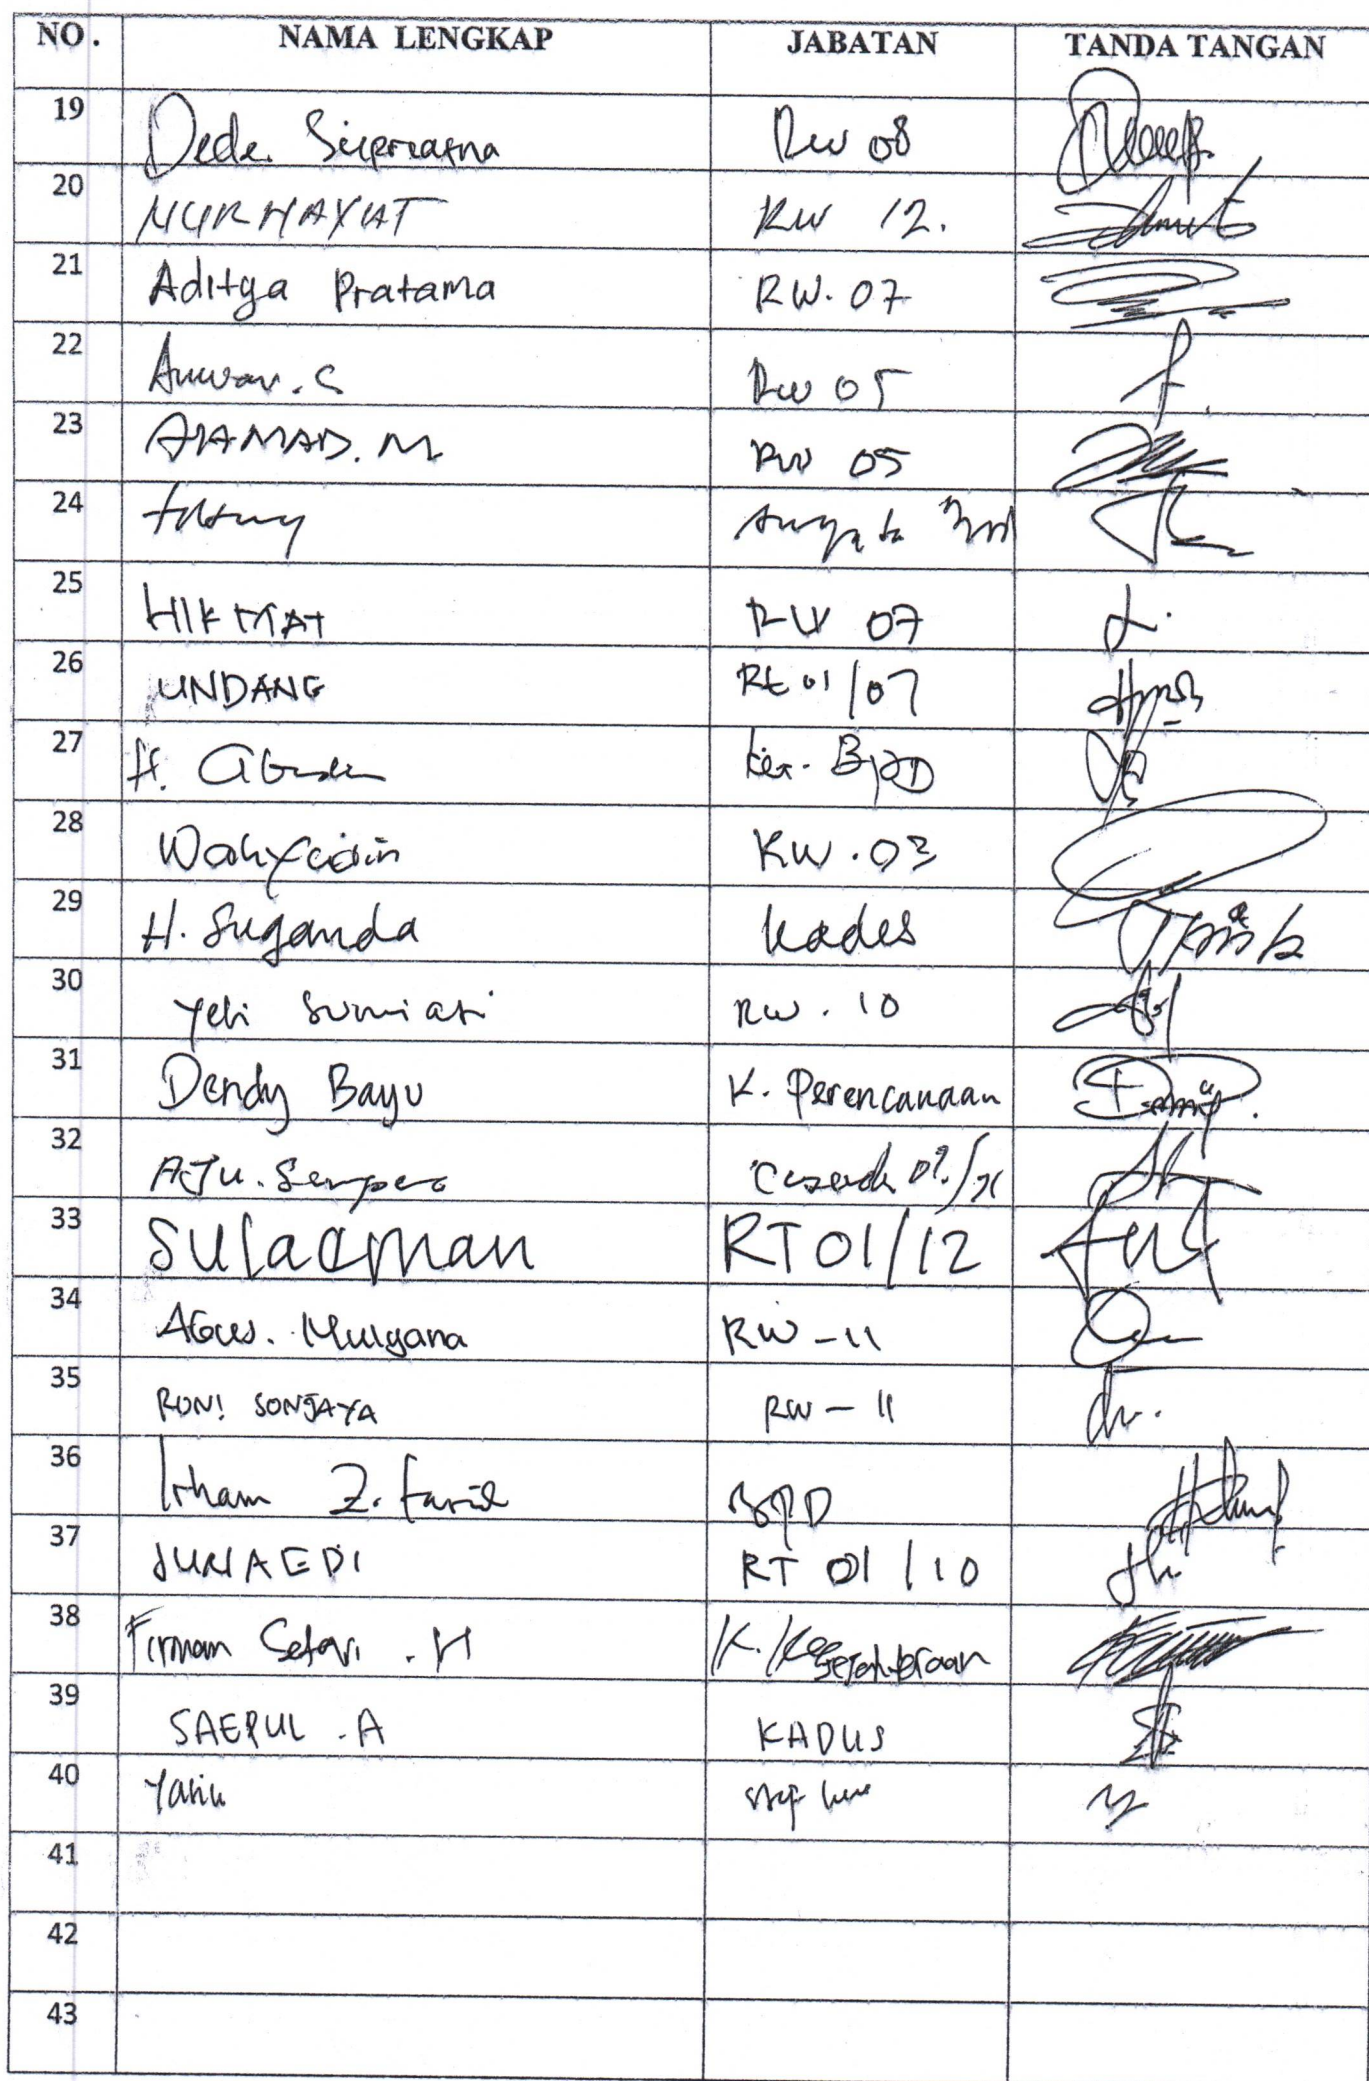 NO. NAMA LENGKAP JABATAN TANDA TANGAN
19 Dede. Supriatna RW 08
20 NURHAYAT RW 12.
21 Aditya Pratama RW. 07
22 Anwar. S RW 05
23 AHMAD. M RW 05
24
25 HIKMAT RW 07
26 UNDANG Rt 01/07
27 H. BPD
28 Wahyudin RW. 03
29 H. Suganda Kades
30 Yeti Sumiati RW. 10
31 Dendy Bayu K. Perencanaan
32
33 Sulaeman RT 01/12
34 Agus. Mulyana RW - 11
35 RONI SONJAYA RW - 11
36 Irham Z. Farid BPD
37 JUNAEDI RT 01 / 10
38 Firman Setia . H K. Kesejahteraan
39 SAEPUL . A KADUS
40
41
42
43